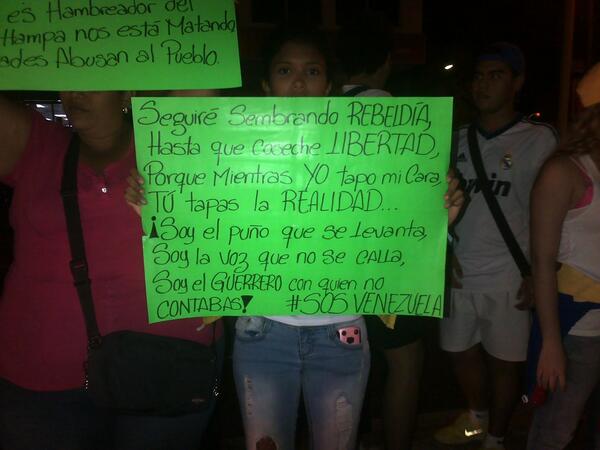 és Hambreador del
Hampa nos está Matando
ades Abusan al Pueblo.
Seguiré Sembrando REBELDÍA,
Hasta que Coseche LIBERTAD,
Porque Mientras YO tapo mi Cara
TÚ tapas la REALIDAD...
¡Soy el puño que se Levanta,
Soy la voz que no se CALLA,
Soy el GUERRERO con quien no
CONTABAS! #SOS VENEZUELA